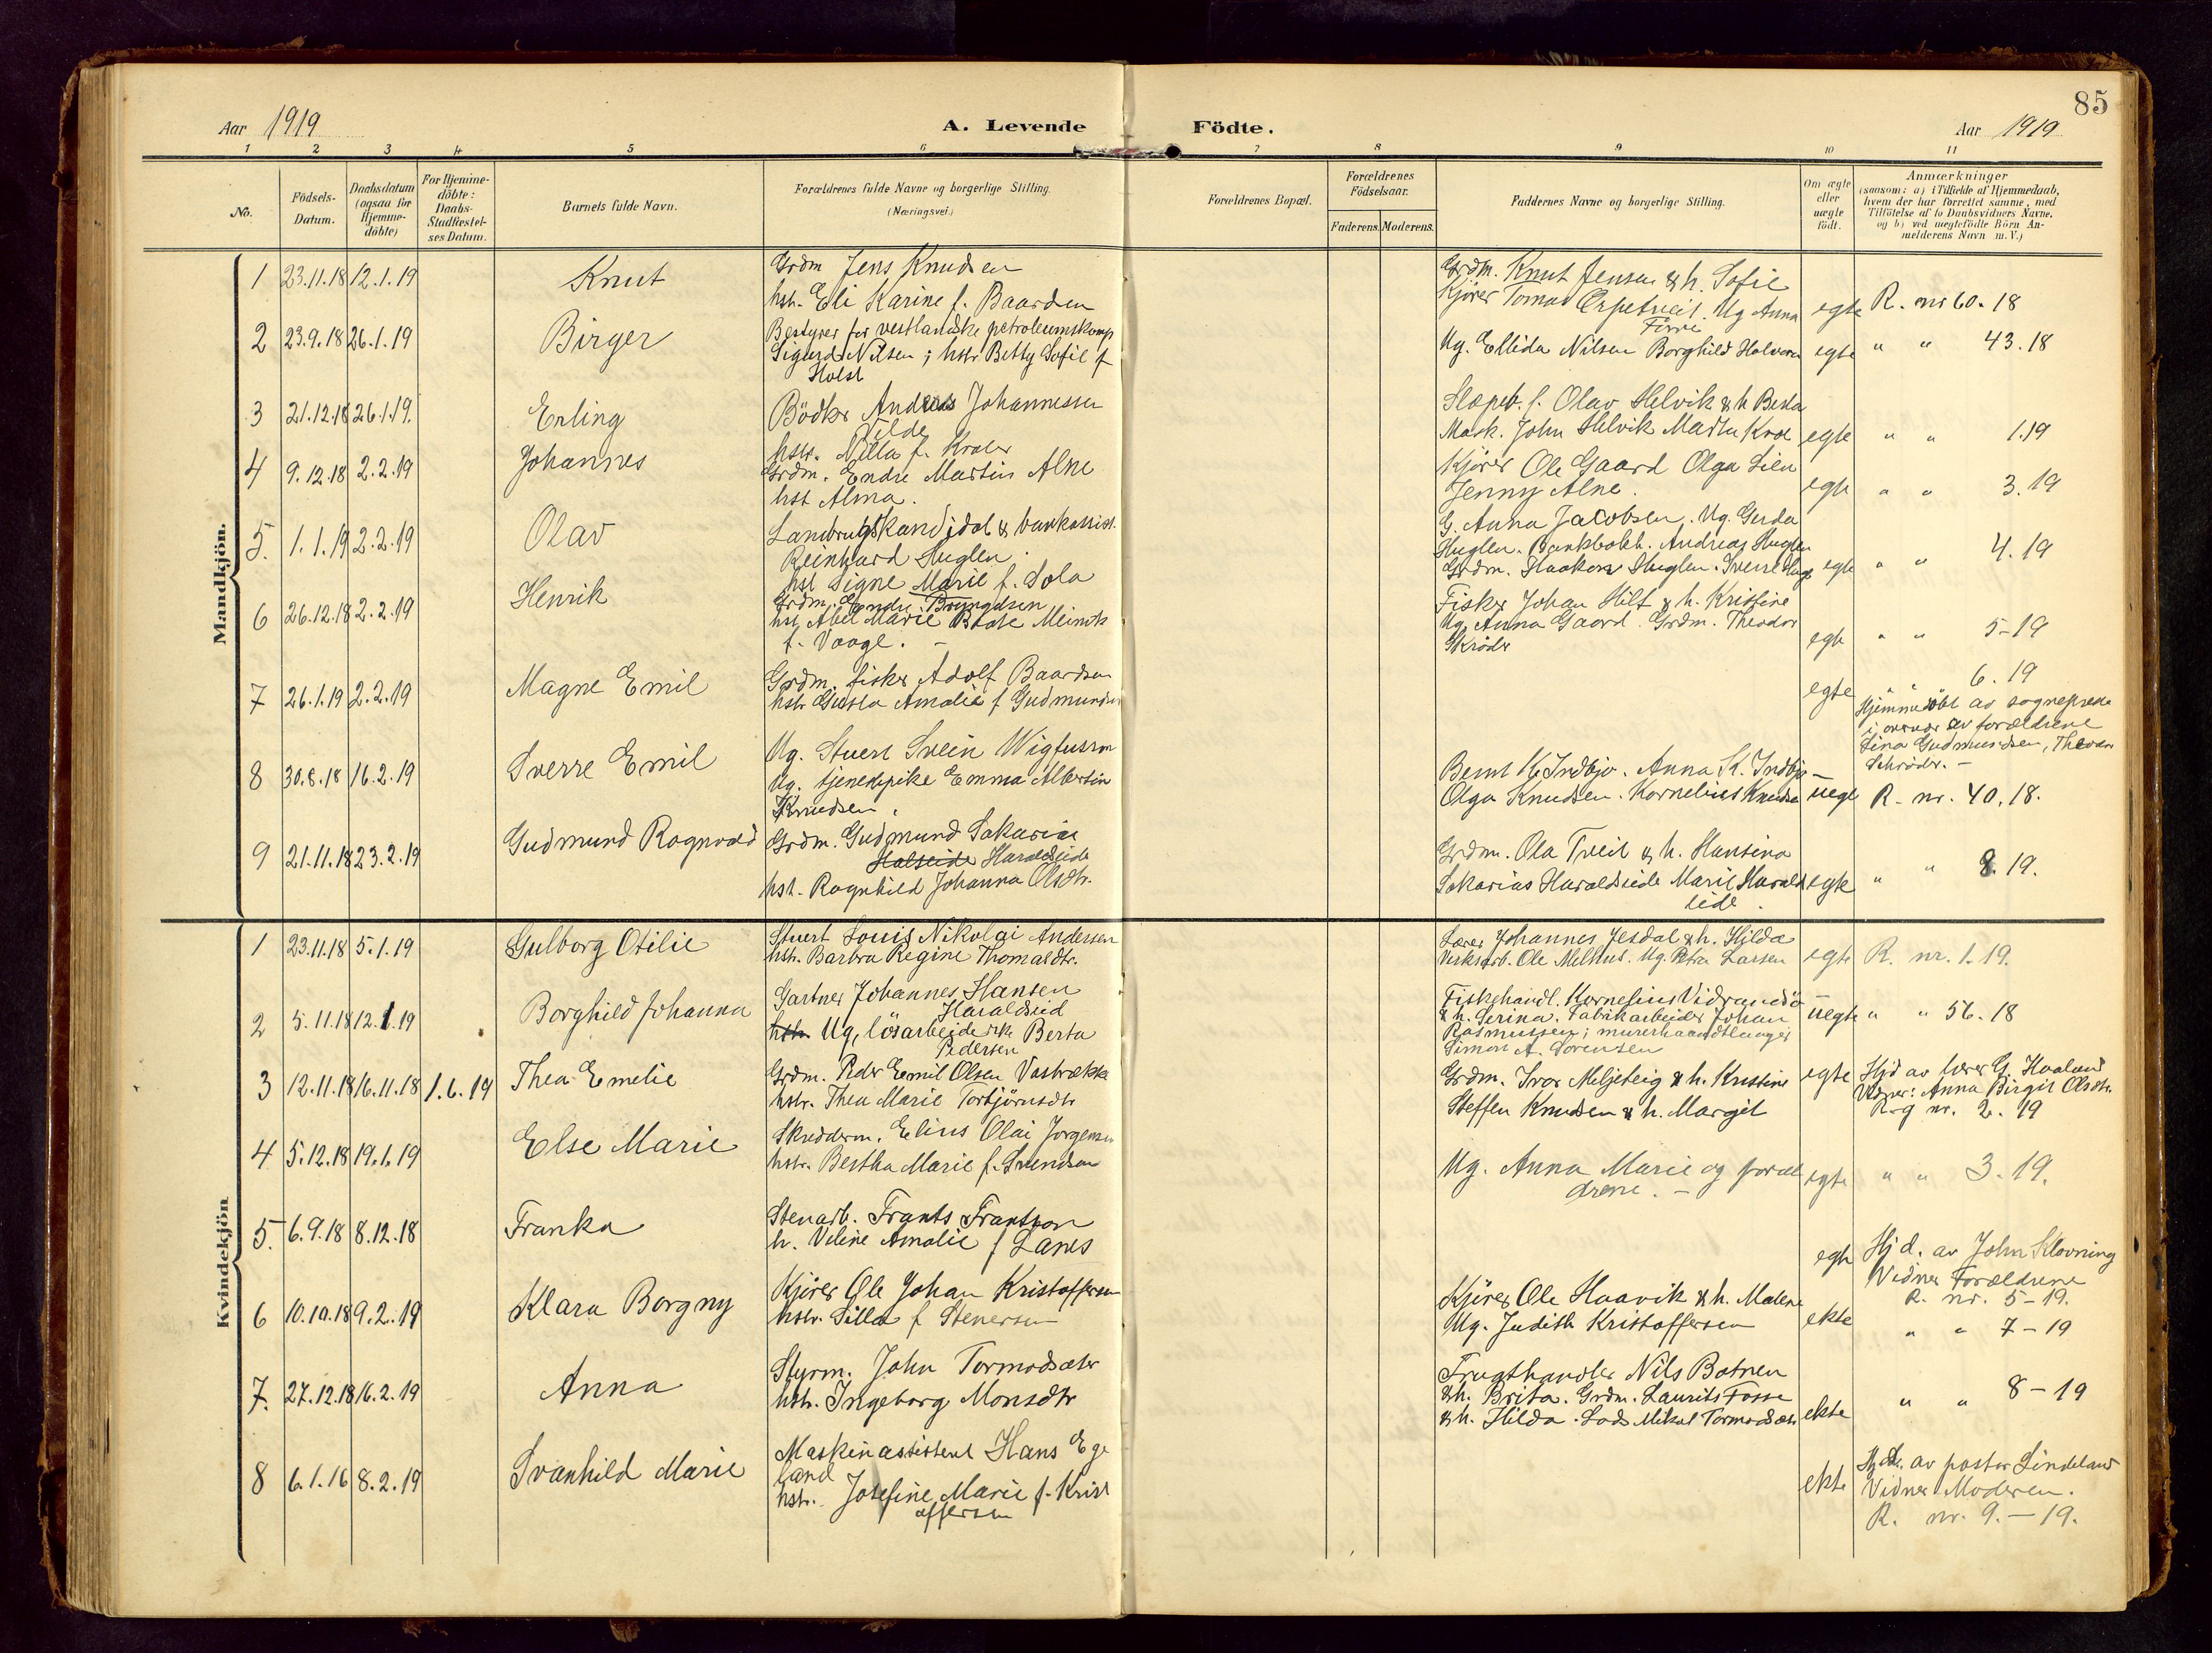 85
Aar 1919
A. Levende Födte.
Aar 1919
1 2 3 4 5 6 7 8 9 10 11
No.
Födsels-
Datum.
Daabsdatum
(ogsaa for
Hjemme-
döbte)
For Hjemme-
döbte:
Daabs-
Stadfæstel-
ses Datum.
Barnets fulde Navn.
Forældrenes fulde Navne og borgerlige Stilling.
(Næringsvei.)
Forældrenes Bopæl.
Forældrenes
Födselsaar.
Faderens. Moderens.
Faddernes Navne og borgerlige Stilling.
Om ægte
eller
uægte
födt.
Anmærkninger
(saasom: a) i Tilfælde af Hjemmedaab,
hvem der har forrettet samme, med
Tilföielse af to Daabsvidners Navne.
og b) ved uegtefödte Börn An-
melderens Navn m. V.)
Mandkjön.
1 23.11.18 12.1.19 Knut
Grdm Jens Knudsen
hst. Eli Karine f. Baardsen
Grdm. Knut Jensen & h. Sofie
Kjörer Tomas Ørpetveit. Ug Anna
egte R. nr 60.18
2 23.9.18 26.1.19 Birger
Bestyrer for vestlandske petroleumskomp
Sigurd Nilsen; hstr Betty Sofie f
Holst
Ug. Ellida Nilsen Borghild Halvors
egte " " 43.18
3 21.12.18 26.1.19. Erling
Bödker Andreas Johannessen
hstr. Nilla f.
Olav Helvik & h Berta
Mask. John Helvik
egte " " 1.19
4 9.12.18 2.2.19 Johannes
Grdm. Endre Martin Alne
hst Alma.
Kjörer Ole Gaard Olga Lien
Jenny Alne.
egte " " 3.19
5. 1.1.19 2.2.19 Olav
Landbrukskandidat & bankassist.
Reinhard Huglen.
hst Signe Marie f. Sola
G. Anna Jacobsen. Ug. Gerda
Huglen. Bankbokh. Andreas Huglen
Grdm. Haakon Huglen. Sverre Hugl
egte " " 4.19
6 26.12.18 2.2.19 Henrik
Grdm. Endre Bryngelsen
hst Abel Marie
f. Vaage. -
Fisker Johan Hilt & h. Kristine
Ug Anna Gaard. Grdm. Theodor
Skröder
egte " " 5-19
7 26.1.19 2.2.19 Magne Emil
Grdm. fisker Adolf Baardsen
hstr Gusta Amalie f Gudmundsen
egte " " 6.19
Hjemmedöbt av sogneprest
i overvær av forældrene
Lina Gudmundsen, Theodor
Schröder. -
8 30.8.18 16.2.19 Sverre Emil
Ug. Stuert Svein Wigfusson
Ug. tjenestepike Emma Albertin
Knudsen.
Bernt K. Indbjo. Anna K. Indbjo
Olga Knudsen. Kornelius Knudsen
uegte R. nr. 40.18.
9 21.11.18 23.2.19 Gudmund Ragnvald
Grdm. Gudmund Sakarias
Halseide Haraldseide
hst. Ragnhild Johanna Olsdtr.
Grdm. Ola Tveit & h. Hansina
Sakarias Haraldseide Marie Harald
seide.
egte " " 8.19.
Kvindekjön
1 23.11.18 5.1.19 Gulborg Otilie
Stuert Louis Nikolai Andersen
hstr. Barbra Regine Thomasdtr.
Lærer Johannes Jesdal & h. Hilda
Verksarb. Ole Melhus. Ug. Petra Larsen
egte R. nr. 1.19.
2 5.11.18 12.1.19 Borghild Johanna
Gartner Johannes Hansen
Haraldseid
hstr Ug, lösarbeiderske Berta
Pedersen
Fiskehandl. Kornelius Vidrandsö
& h. Serina. Fabrikarbeider Johan
Rasmussen; murerhaandtlanger
Simon A. Sorensen
uegte " " 56.18
3 12.11.18 16.11.18 1.6.19 Thea Emelie
Grdm. Peder Emil Olsen Vastvække
hstr. Thea Marie Torbjörnsdtr
Grdm. Ivar Meljeteig & h. Kristine
Steffen Knudsen & h. Margit
egte Hjd av lærer G. Haaland
Vidner: Anna Birgit Olsdtr.
Rg nr. 2.19
4 5.12.18 19.1.19 Else Marie
Skredderm. Elius Olai Jorgensen
hstr. Bertha Marie f. Svendsen
Ug. Anna Marie og foræl
drene. -
egte " " 3.19.
5. 6.9.18 8.12.18 Franka
Stenarb. Frants Frantson
h. Veline Amalie f Lanes
egte Hjd. av John Klovning
Vidner Forældrene
R. nr. 5-19.
6 10.10.18 9.2.19 Klara Borgny
Kjörer Ole Johan Kristoffersen
hstr. Silla f Stenersen
Kjörer Ole Haavik & h. Malene
Ug. Judith Kristoffersen
ekte " " 7-19
7. 27.12.18 16.2.19 Anna
Styrm. John Tormodsæter
hstr. Ingeborg Monsdtr
Frugthandler Nils Botnen
& h. Brita. Grdm. Laurits Fosse
& h. Hilda. Lods Mikal Tormodsæter
ekte " " 8-19
8 6.1.16 8.2.19 Svanhild Marie
Maskinassistent Hans Ege
land
hstr. Josefine Marie f. Krist
offersen
ekte Hjd. av pastor Lindeland
Vidner Moderen.
R. nr. 9.-19.